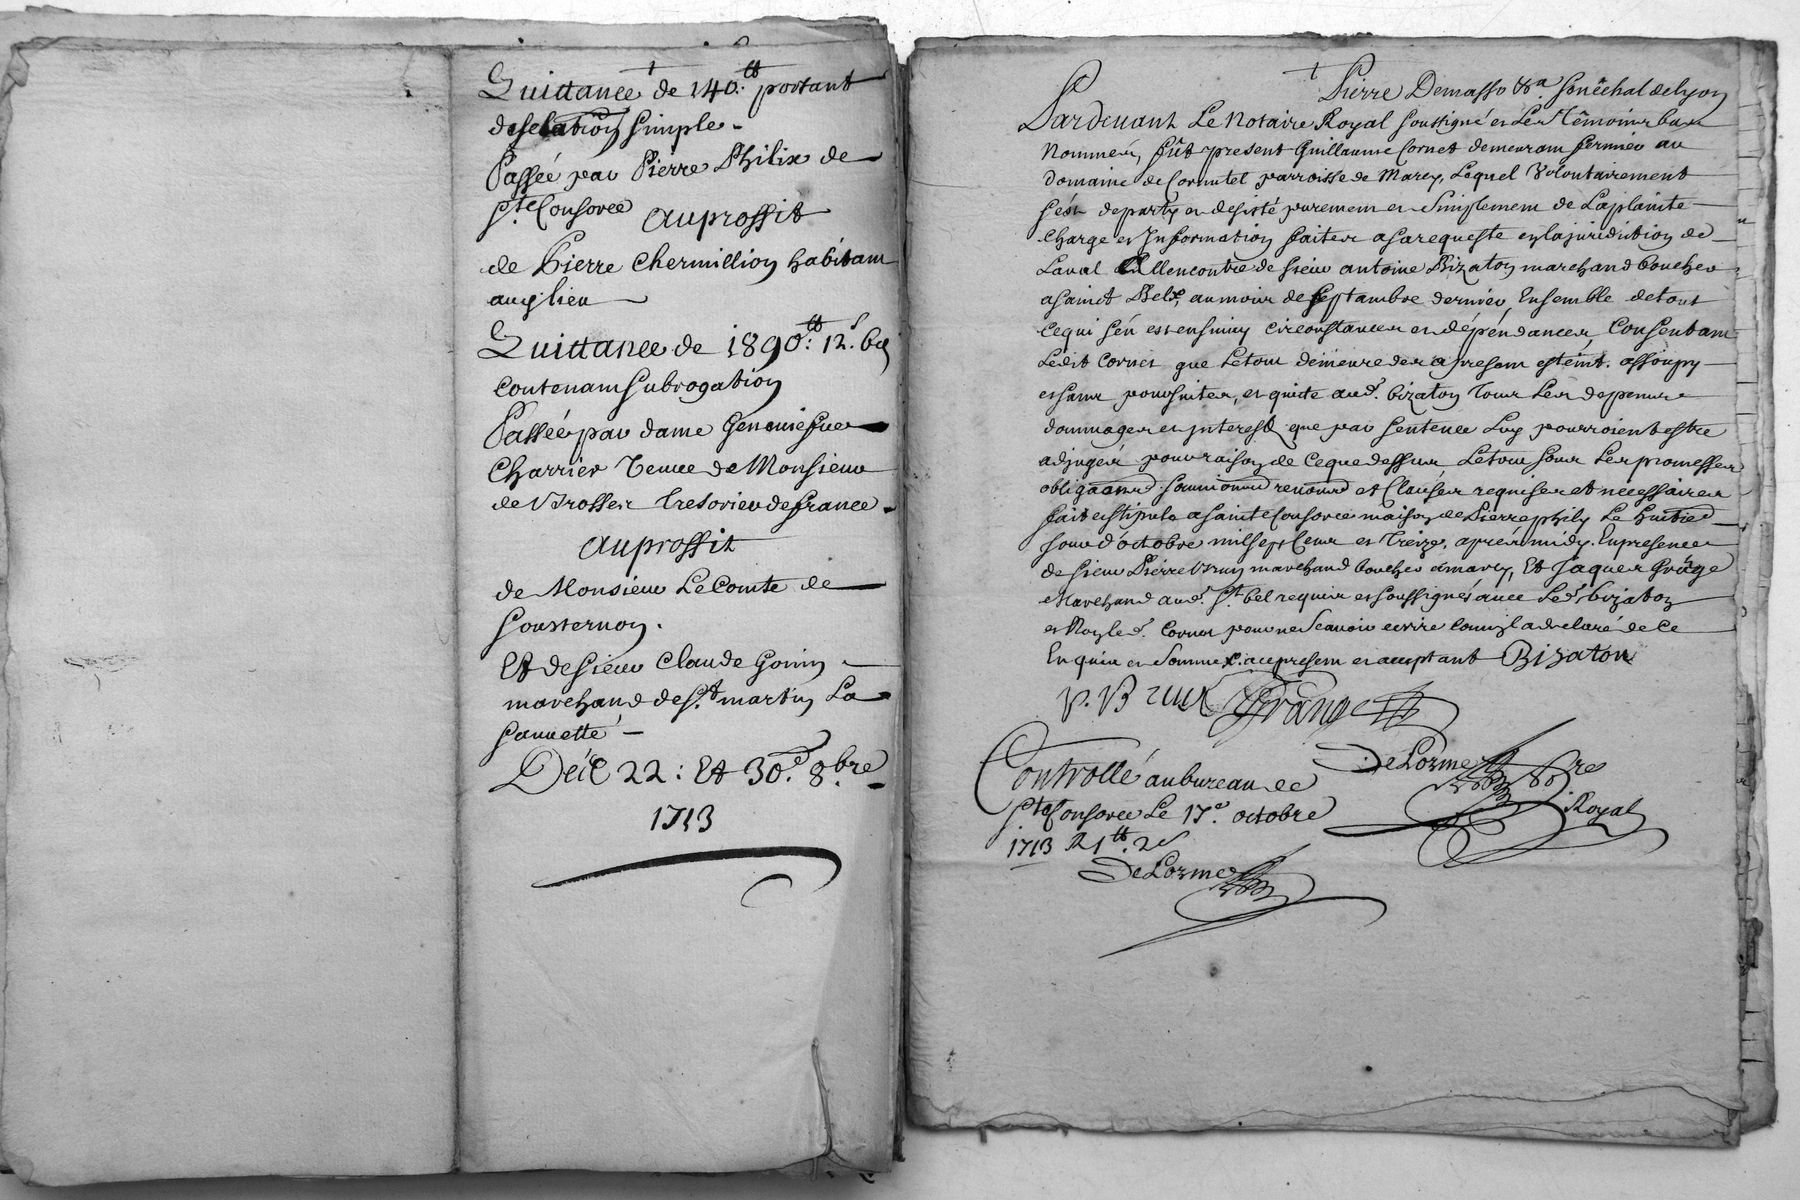 Quittance de 140.tt portant
deselation simple -
Passée par Pierre Philix de
Ste Consorce Auproffit
de Pierre Chermillion habitam
audlieu
Quittance de 1890.tt: 12.s 6d
contenam subrogation
Passée par dame Genevieſue
Charrier veuve de Monsieur
de Brosses tresorier de france
Auproffit
de Monsieur Le Comte de
Sousternon.
Et de Sieur Claude Gonin
marchand de St martin La
Sauvetté -
Deſ 22: Et 30.e 8.bre
1713
Pierre Demasso &.a Senéchal de lyon
Pardevant Le Notaire Royal soussigné et Les Témoins bas
Nommés, fût present Guillaume Cornet demeuram fermier au
domaine de Cornutel parroisse de Marcy, Lequel volontairement
s'est departy et desisté purement et Simplement de La plainte
charge et Information faites a sa requeste en la juridiction de
Laval Allencontre de sieur antoine Bizaton marchand boucher
a sainct Bel, au mois de septambre dernier Ensemble de tout
ce qui s'en est ensuivy circonstances et dépendances, Consentam
Ledit Cornet que Letout demeure des a presem esteint. assoupy
et sans poursuites, et quicte aud. bizaton Tous Les depens
dommages et jnterests que par sentence Luy pourroient estre
adjugés pour raison de ce que dessus Letout sous Les promesses
obligaons soumissions renons et Clauses requises et necessaires
fait et stipulé a sainte Consorce maison de Pierre phily Le huitie
jour d'octobre mil sept Cens et Treize, aprés midy. En presence
de sieur Pierre Brun marchand boucher a marcy, Et Jaques Grãge
Marchand aud. St. bel requis et soussignés avec Led. bizaton
et Non led. Cornet pour ne scavoir ecrire comil a declaré de ce
Enquis et Sommé. au presem et acceptant Bizaton
P. Brun JGrange
Controllé au bureau de DeLorme No.re
Ste Consorce Le 17.e octobre Royal
1713 R 1tt. 2s
DeLorme